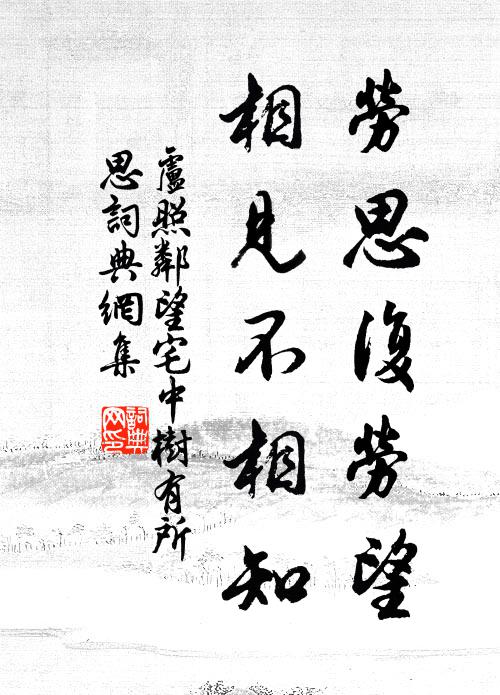 勞思復勞望
相見不相知
盧照鄰望宅中樹有所
思詞典網集
詞典网印